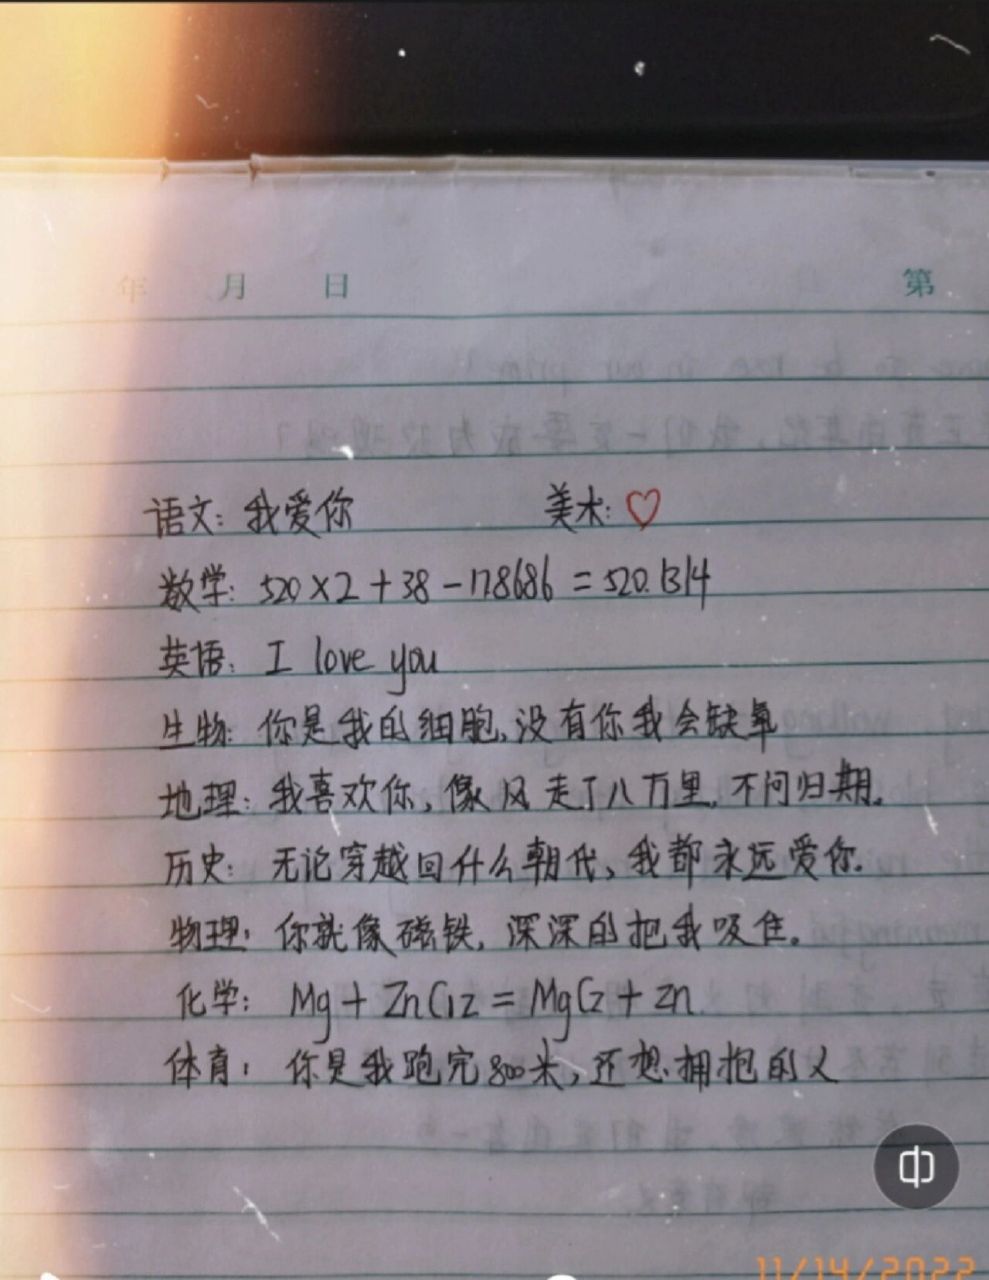 年 月 日 第
语文：我爱你 美术：♡
数学：520×2+38-178686=520.1314
英语：I love you
生物：你是我的细胞，没有你我会缺氧
地理：我喜欢你，像风走了八万里，不问归期。
历史：无论穿越回什么朝代，我都永远爱你.
物理：你就像磁铁，深深的把我吸住。
化学：Mg+ZnCl2=MgCl2+Zn
体育：你是我跑完800米，还想拥抱的人
11/14/2022